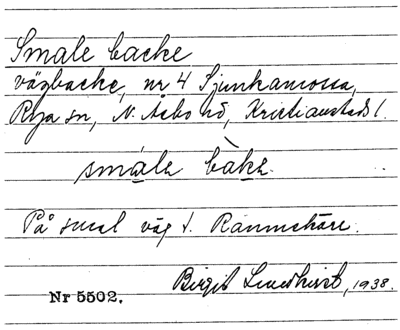 Smale backe
vägbacke, nr 4 Sjunkamossa,
Röja sn, N. Åsbo hd, Kristianstads l.
smále bàkə.
På smal väg t. Rammekärr.
Birgit Lundkvist, 1938.
Nr 5502.